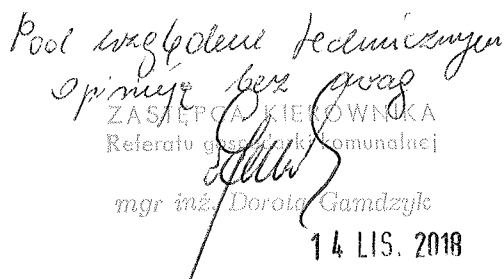 Pod względem technicznym
opiniuję bez uwag
ZASTĘPCA KIEROWNIKA
Referatu gospodarki komunalnej
mgr inż. Dorota Gamdzyk
14 LIS. 2018